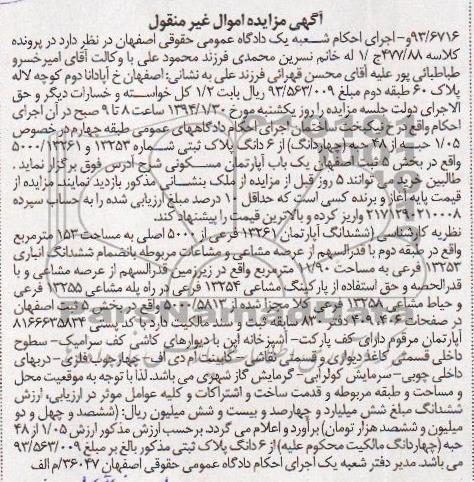 آگهی مزایده اموال غیر منقول
۹۳/۶۷۱۶و- اجرای احکام شعبه یک دادگاه عمومی حقوقی اصفهان در نظر دارد در پرونده
کلاسه ۴۷۷/۸۸ج ۱/ له خانم نسرین محمدی فرزند محمود علی با وکالت آقای امیر خسرو
طباطبائی پور علیه آقای محسن قهرائی فرزند علی به نشانی: اصفهان خ آپادانا دوم کوچه لاله
پلاک ۶۰ طبقه دوم مبلغ ۹۳/۵۶۳/۰۰۹ ریال بابت ۱/۲ کل خواسته و خسارات دیگر و حق
الاجرای دولت جلسه مزایده را روز یکشنبه مورخ ۱۳۹۴/۱/۳۰ ساعت ۸ تا ۹ صبح در آن اجرای
احکام واقع در خ نیکبخت ساختمان اجرای احکام دادگاههای عمومی طبقه چهارم در خصوص
۱/۰۵ حبه از ۴۸ حبه (چهاردانگ) از ۶ دانگ پلاک ثبتی شماره ۱۳۲۵۳ و ۵۰۰۰/۱۳۲۶۱
واقع در بخش ۵ ثبت اصفهان یک باب آپارتمان مسکونی شرح آدرس فوق برگزار نماید.
طالبین خرید می توانند ۵ روز قبل از مزایده از ملک بنشانی مذکور بازدید نمایند. مزایده از
قیمت پایه آغاز و برنده کسی است که حداقل ۱۰ درصد مبلغ ارزیابی شده را به حساب سپرده
۲۱۷۱۲۹۰۲۱۰۰۰۸ واریز کرده و بالاترین قیمت را پیشنهاد کند.
نظریه کارشناسی (ششدانگ آپارتمان ۱۳۲۶۱ فرعی از ۵۰۰۰ اصلی به مساحت ۱۵۳ مترمربع
واقع در طبقه دوم با قدرالسهم از عرصه مشاعی و مشاعات مربوطه بانضمام ششدانگ انباری
۱۳۲۵۳ فرعی به مساحت ۲/۹۰ مترمربع واقع در زیرزمین قدرالسهم از عرصه مشاعی و با
قدرالحصه و حق استفاده از پارکینگ مشاعی ۱۳۲۵۴ فرعی در راه پله مشاعی ۱۳۲۵۵ فرعی
و حیاط مشاعی ۱۳۲۵۸ فرعی کلا مجزا شده از ۵۰۰۰/۵۸۱۳ واقع در بخش ۵ ثبت اصفهان
در صفحات ۴۰۶ و ۴۰۹ دفتر ۸۳۰ سابقه ثبت و سند مالکیت دارد با کد پستی ۸۱۶۶۶۳۵۸۳۴
آپارتمان مرقوم دارای کف پارکت- آشپزخانه اپن با دیوارهای کاشی کف سرامیک- سطوح
داخلی قسمتی کاغذ دیواری و قسمتی نقاشی- کابینت ام دی اف- چهارچوب فلزی- دربهای
داخلی چوبی- سرمایش کولرآبی- گرمایش گاز شهری می باشد. لذا با توجه به موقعیت محل
و مساحت و طبقه مربوطه و قدمت ساخت و اشتراکات و کلیه عوامل موثر در ارزیابی، ارزش
ششدانگ مبلغ شش میلیارد و چهارصد و بیست و شش میلیون ریال: (ششصد و چهل و دو
میلیون و ششصد هزار تومان) برآورد و اعلام می گردد. برحسب ارزش مذکور ارزش ۱/۰۵ از ۴۸
حبه (چهاردانگ مالکیت محکوم علیه) از ۶ دانگ پلاک ثبتی مذکور بالغ بر مبلغ ۹۳/۵۶۳/۰۰۹
می باشد. مدیر دفتر شعبه یک اجرای احکام دادگاه عمومی حقوقی اصفهان ۳۶۰۴۷/م الف